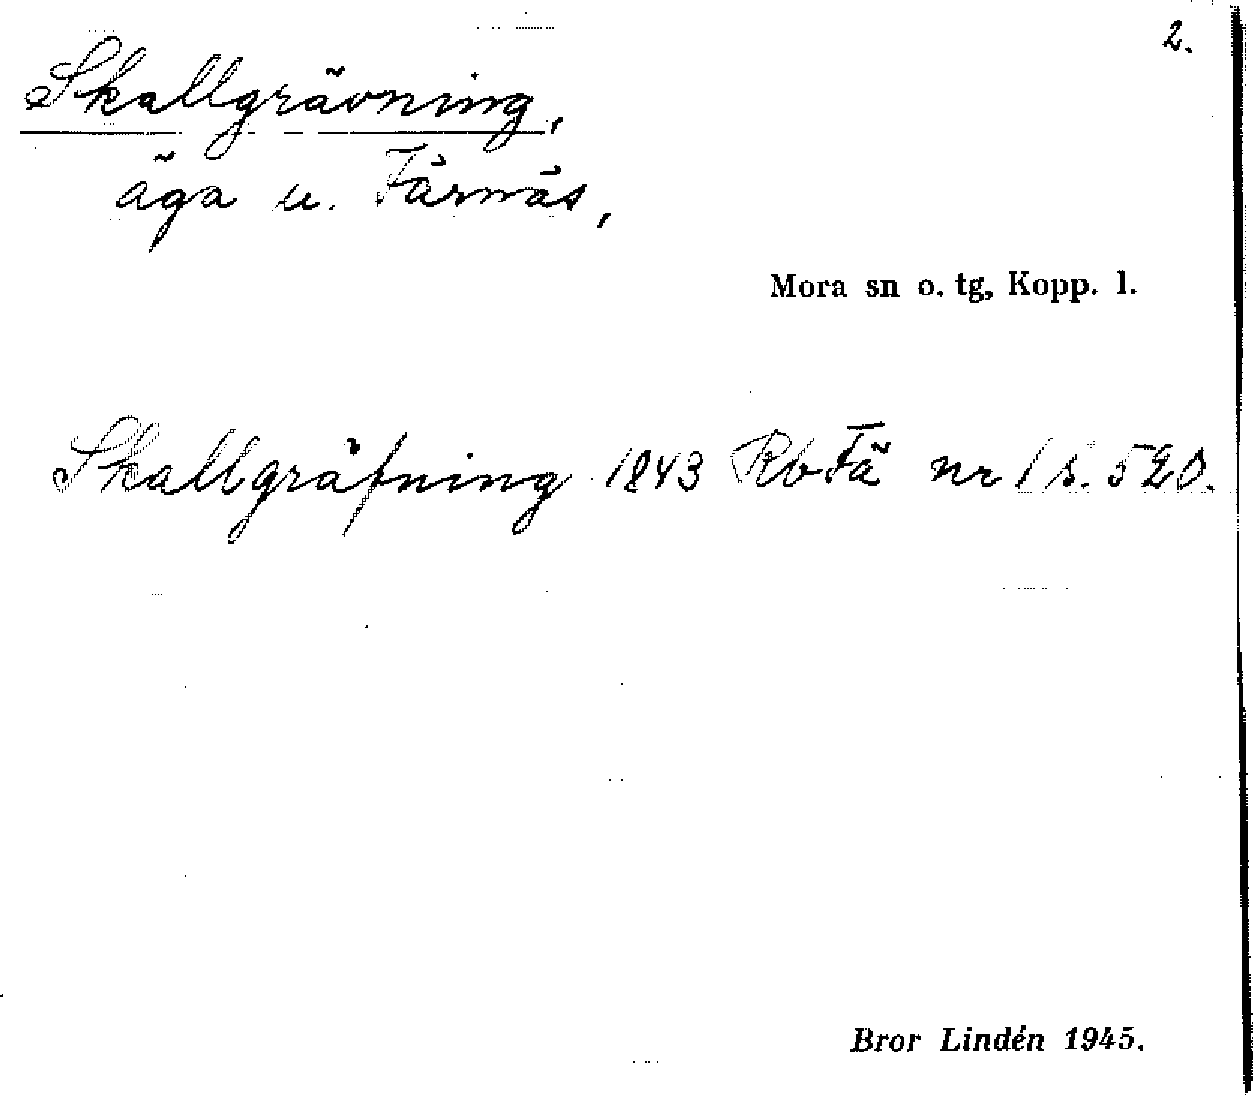 2.
Skallgrävning,
äga u. Färnäs,
Mora sn o. tg, Kopp. l.
Skallgräfning 1843 Rb Fä nr 1 s. 520.
Bror Lindén 1945.